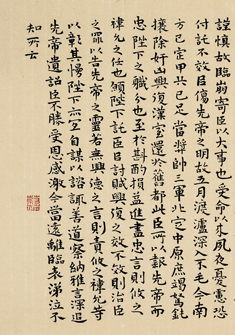 謹慎故臨崩寄臣以大事也受命以來夙夜憂慮恐
付託不效以傷先帝之明故五月渡瀘深入不毛今南
方已定甲兵已足當獎帥三軍北定中原庶竭駑鈍
攘除奸凶興復漢室還於舊都此臣所以報先帝而
忠陛下之職分也至於斟酌損益進盡忠言則攸之
禕允之任也願陛下託臣討賊興復之效不效則治臣
之罪以告先帝之靈若無興德之言則責攸之禕允等
以彰其慢陛下亦宜自謀以諮諏善道察納雅言深追
先帝遺詔臣不勝受恩感激今當遠離臨表涕泣不
知所云